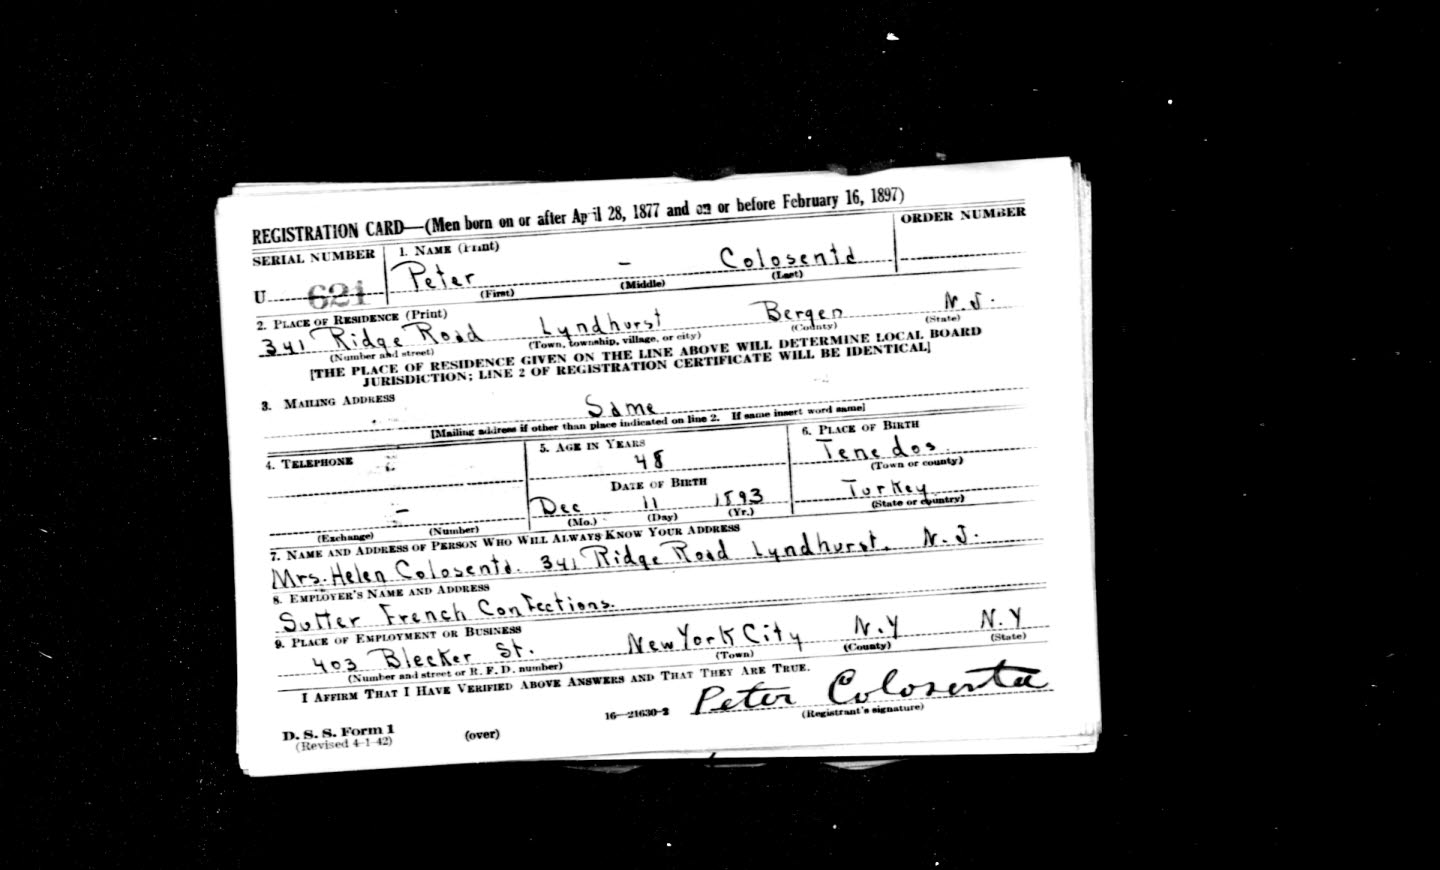 REGISTRATION CARD—(Men born on or after April 28, 1877 and on or before February 16, 1897)
SERIAL NUMBER
1. NAME (Print)
ORDER NUMBER
U 621
Peter – Colosenta
(First) (Middle) (Last)
2. PLACE OF RESIDENCE (Print)
341 Ridge Road Lyndhurst Bergen N.J.
(Number and street) (Town, township, village, or city) (County) (State)
[THE PLACE OF RESIDENCE GIVEN ON THE LINE ABOVE WILL DETERMINE LOCAL BOARD
JURISDICTION; LINE 2 OF REGISTRATION CERTIFICATE WILL BE IDENTICAL]
3. MAILING ADDRESS
Same
[Mailing address if other than place indicated on line 2. If same insert word same]
4. TELEPHONE
–
(Exchange) (Number)
5. AGE IN YEARS
48
DATE OF BIRTH
Dec 11 1893
(Mo.) (Day) (Yr.)
6. PLACE OF BIRTH
Tenedos
(Town or county)
Turkey
(State or country)
7. NAME AND ADDRESS OF PERSON WHO WILL ALWAYS KNOW YOUR ADDRESS
Mrs. Helen Colosenta. 341 Ridge Road Lyndhurst. N.J.
8. EMPLOYER'S NAME AND ADDRESS
Sutter French Confections.
9. PLACE OF EMPLOYMENT OR BUSINESS
403 Blecker St. New York City N.Y N.Y
(Number and street or R. F. D. number) (Town) (County) (State)
I AFFIRM THAT I HAVE VERIFIED ABOVE ANSWERS AND THAT THEY ARE TRUE.
Peter Colosenta
D. S. S. Form 1
(Revised 4-1-42)
(over)
16—21630-2
(Registrant's signature)